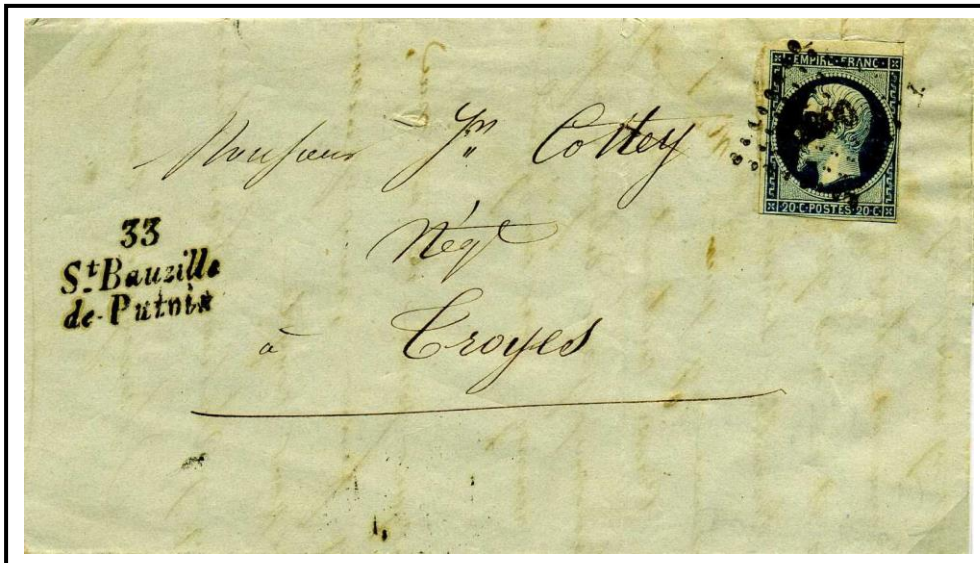 EMPIRE FRANC
20 C POSTES 20 C
Monsieur Jh Cottey
Négt
à Troyes
33
St Bauzille
de Putois